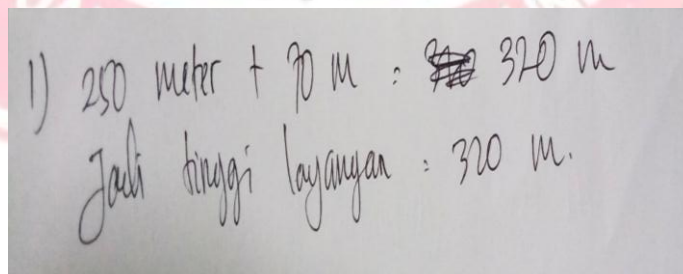 1) 250 meter + 70 m = 320 m
Jadi tinggi layangan = 320 m.